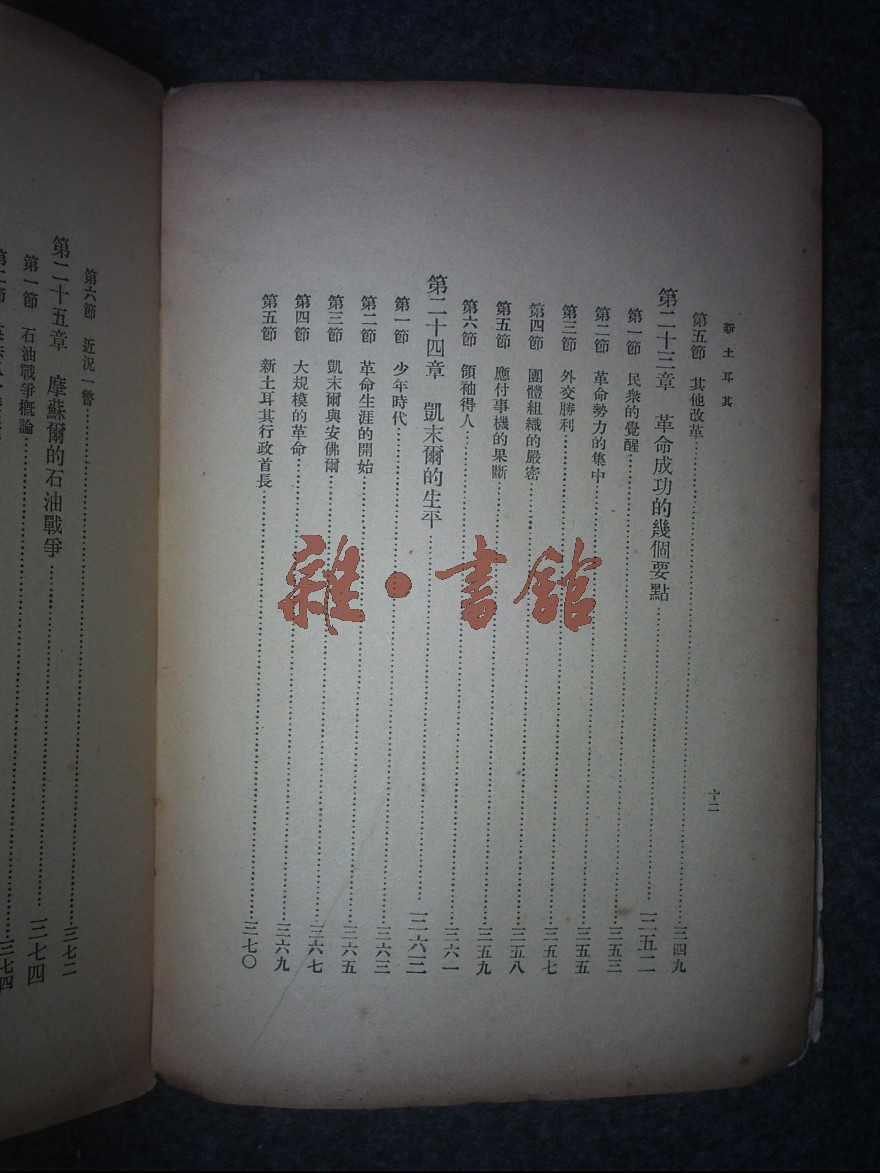 新土耳其
十二
第五節 其他改革…三四九
第二十三章 革命成功的幾個要點…三五二
第一節 民衆的覺醒…三五三
第二節 革命勢力的集中…三五五
第三節 外交勝利…三五七
第四節 團體組織的嚴密…三五八
第五節 應付事機的果斷…三五九
第六節 領袖得人…三六一
第二十四章 凱末爾的生平…三六三
第一節 少年時代…三六三
第二節 革命生涯的開始…三六五
第三節 凱末爾與安佛爾…三六七
第四節 大規模的革命…三六九
第五節 新土耳其行政首長…三七〇
第六節 近況一瞥…三七二
第二十五章 摩蘇爾的石油戰爭…三七四
第一節 石油戰爭概論…三七四
雜·書館